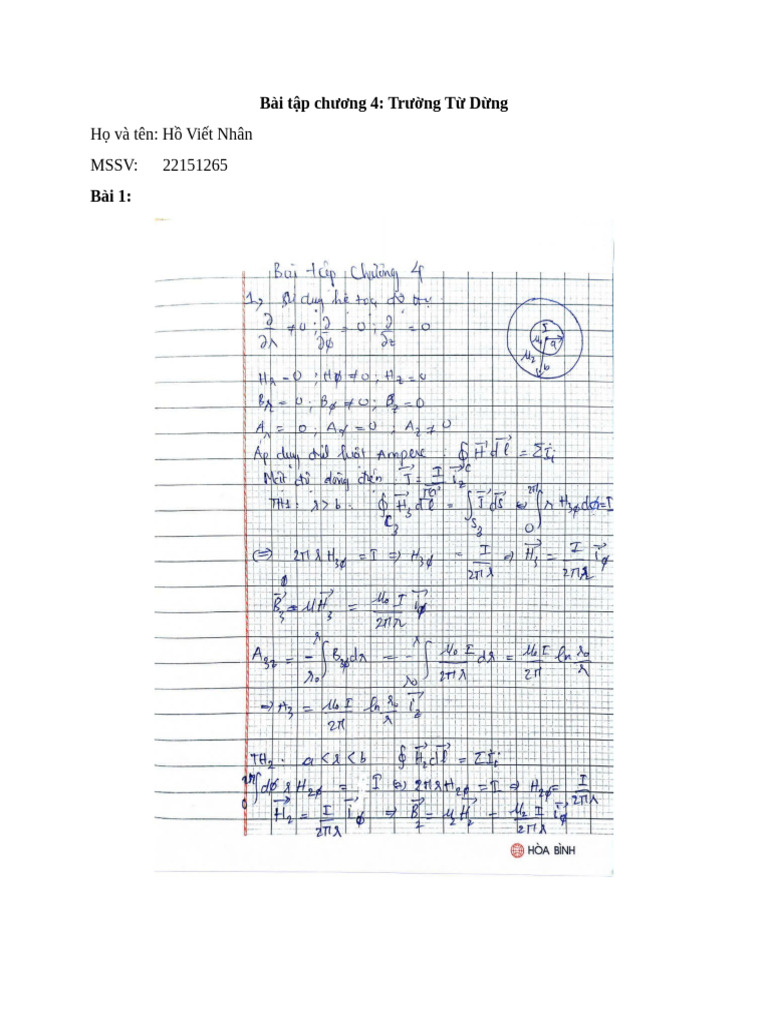 Bài tập chương 4: Trường Từ Dừng
Họ và tên: Hồ Viết Nhân
MSSV: 22151265
Bài 1:
Bài tập Chương 4
1, Sử dụng hệ tọa độ trụ
∂/∂r ≠ 0 ; ∂/∂ϕ = 0 ; ∂/∂z = 0
I
μ₁ a
μ₂
b
Hr = 0 ; Hϕ ≠ 0 ; Hz = 0
Br = 0 ; Bϕ ≠ 0 ; Bz = 0
Ar = 0 ; Aϕ = 0 ; Az ≠ 0
Áp dụng định luật Ampere : ∮ H⃗ dl⃗ = ΣIᵢ
Mật độ dòng điện : J⃗ = I/πa² i⃗z
TH1 : r > b : ∮C₃ H⃗₃ dl⃗ = ∫S₃ J⃗ ds⃗ ⇔ ∫₀^2π r H₃ϕ dϕ = I
⇔ 2πr H₃ϕ = I ⇒ H₃ϕ = I/2πr ⇒ H⃗₃ = I/2πr i⃗ϕ
B⃗₃ = μ₀H⃗₃ = μ₀I/2πr i⃗ϕ
A₃z = -∫r₀^r B₃ϕ dr = -∫r₀^r μ₀I/2πr dr = μ₀I/2π ln r₀/r
⇒ A₃ = μ₀I/2π ln r₀/r i⃗z
TH2 : a < r < b ∮ H⃗₂ dl⃗ = ΣIᵢ
∫₀^2π dϕ r H₂ϕ = I ⇔ 2πr H₂ϕ = I ⇒ H₂ϕ = I/2πr
H⃗₂ = I/2πr i⃗ϕ ⇒ B⃗₂ = μ₂H⃗₂ = μ₂I/2πr i⃗ϕ
HÒA BÌNH